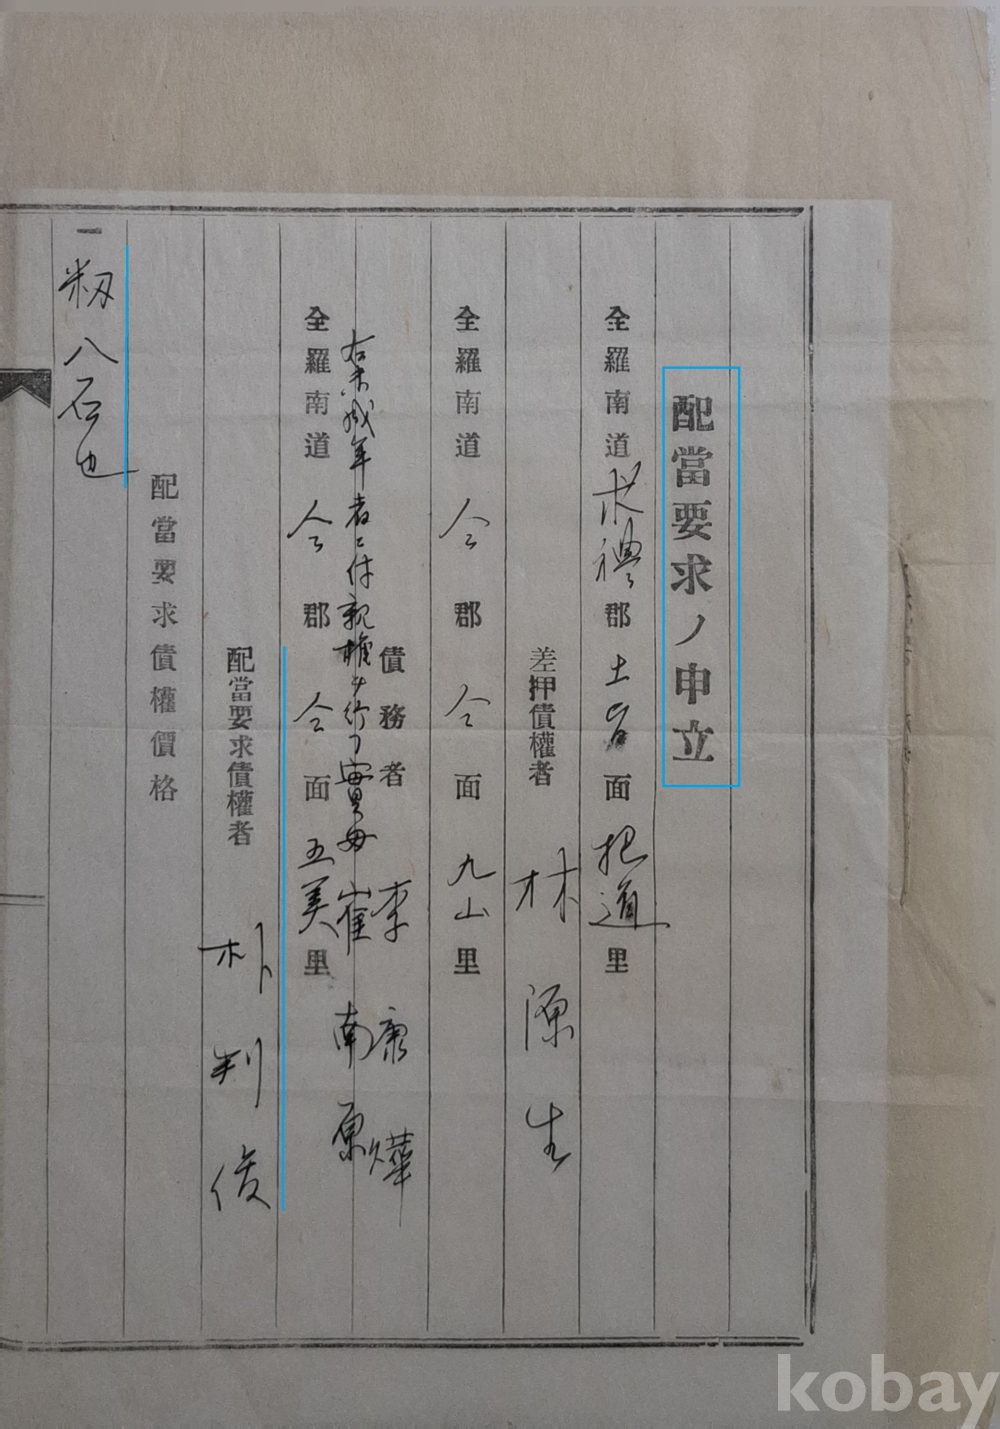 配當要求ノ申立
全羅南道求禮郡土旨面把道里
差押債權者 林源生
全羅南道仝郡仝面九山里
債務者 李康燁
右未成年者ニ付親權ヲ行フ實母 崔南原
全羅南道仝郡仝面五美里
配當要求債權者 朴判俊
配當要求債權價格
一 籾八石也
kobay